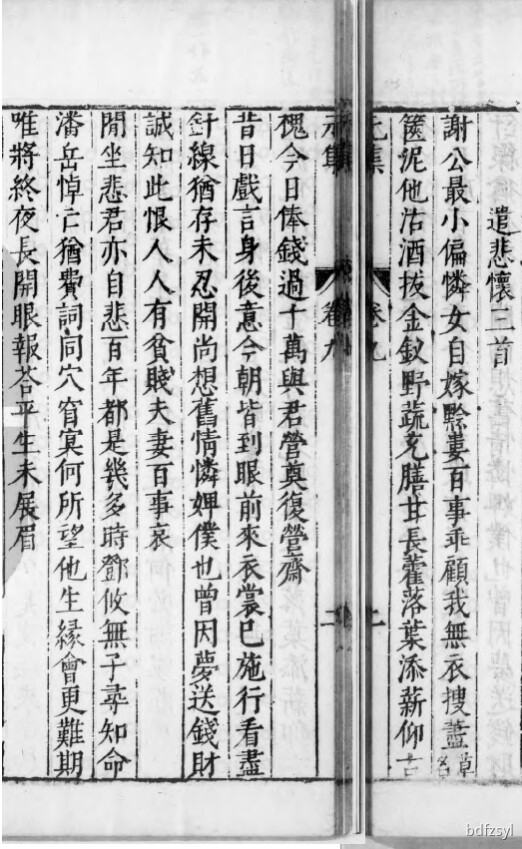 遣悲懷三首
謝公最小偏憐女自嫁黔婁百事乖顧我無衣搜藎草名
篋泥他沽酒拔金釵野蔬充膳甘長藿落葉添薪仰古
元集 卷九 二
元集 卷九 二
槐今日俸錢過十萬與君營奠復營齋
昔日戲言身後意今朝皆到眼前來衣裳已施行看盡
針線猶存未忍開尚想舊情憐婢僕也曾因夢送錢財
誠知此恨人人有貧賤夫妻百事哀
閒坐悲君亦自悲百年都是幾多時鄧攸無子尋知命
潘岳悼亡猶費詞同穴窅冥何所望他生緣會更難期
唯將終夜長開眼報荅平生未展眉
bdfzsyl